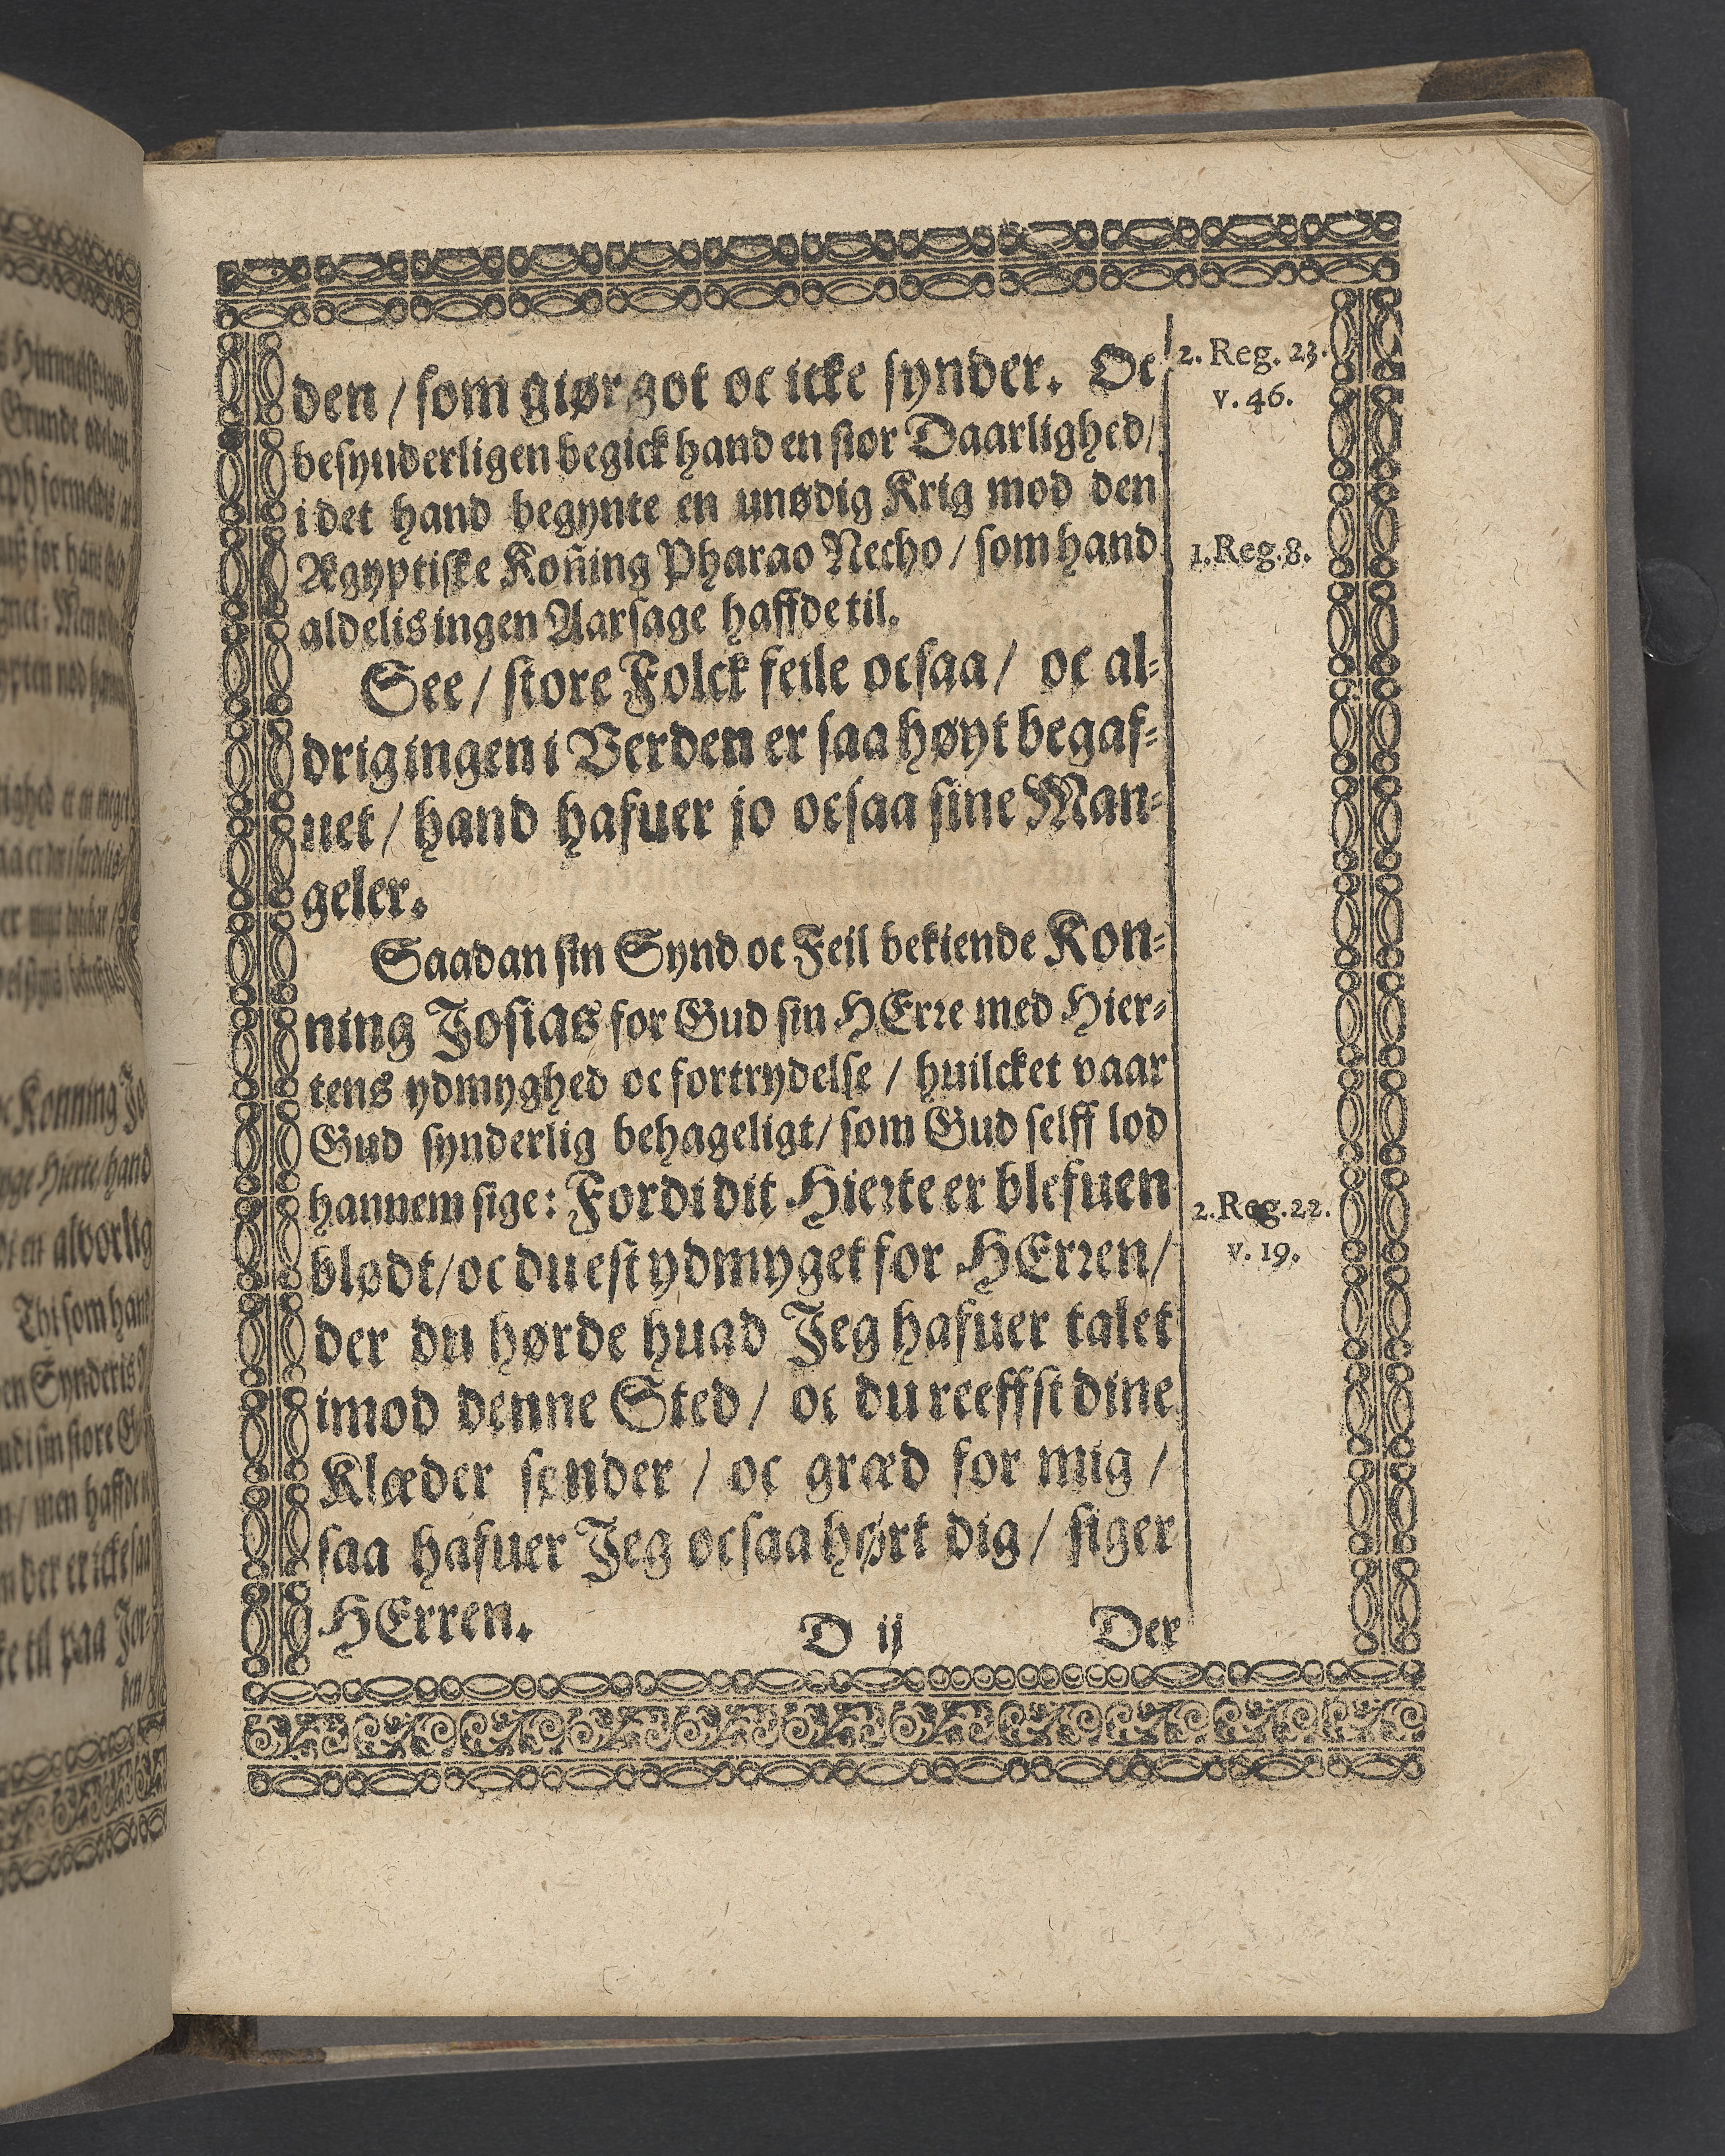 den / som giør got oc icke synder. Oc
besynderligen begick hand en stor Daarlighed /
i det hand begynte en unødig Krig mod den
Ægyptiske Koñing Pharao Necho / som hand
aldelis ingen Aarsage haffde til.
See / store Folck feile ocsaa / oc al-
drig ingen i Verden er saa høyt begaf-
uet / hand hafuer jo ocsaa sine Man-
geler.
Saadan sin Synd oc Feil bekiende Kon-
ning Josias for Gud sin HErre med Hier-
tens ydmyghed oc fortrydelse / huilcket vaar
Gud synderlig behageligt / som Gud selff lod
hannem sige: Fordi dit Hierte er blefuen
blødt / oc du est ydmyget for HErren /
der du hørde huad Jeg hafuer talet
imod denne Sted / oc du reeffst dine
Klæder sønder / oc græd for mig /
saa hafuer Jeg ocsaa hørt dig / siger
HErren.
D ij Der
2. Reg. 23.
v. 46.
1. Reg. 8.
2. Reg. 22.
v. 19.
Grunde
Konning
Hierte / hand
en alvorlig
Thi som hand
sin store
men haffde
der er icke saa
til paa Jer-
den /